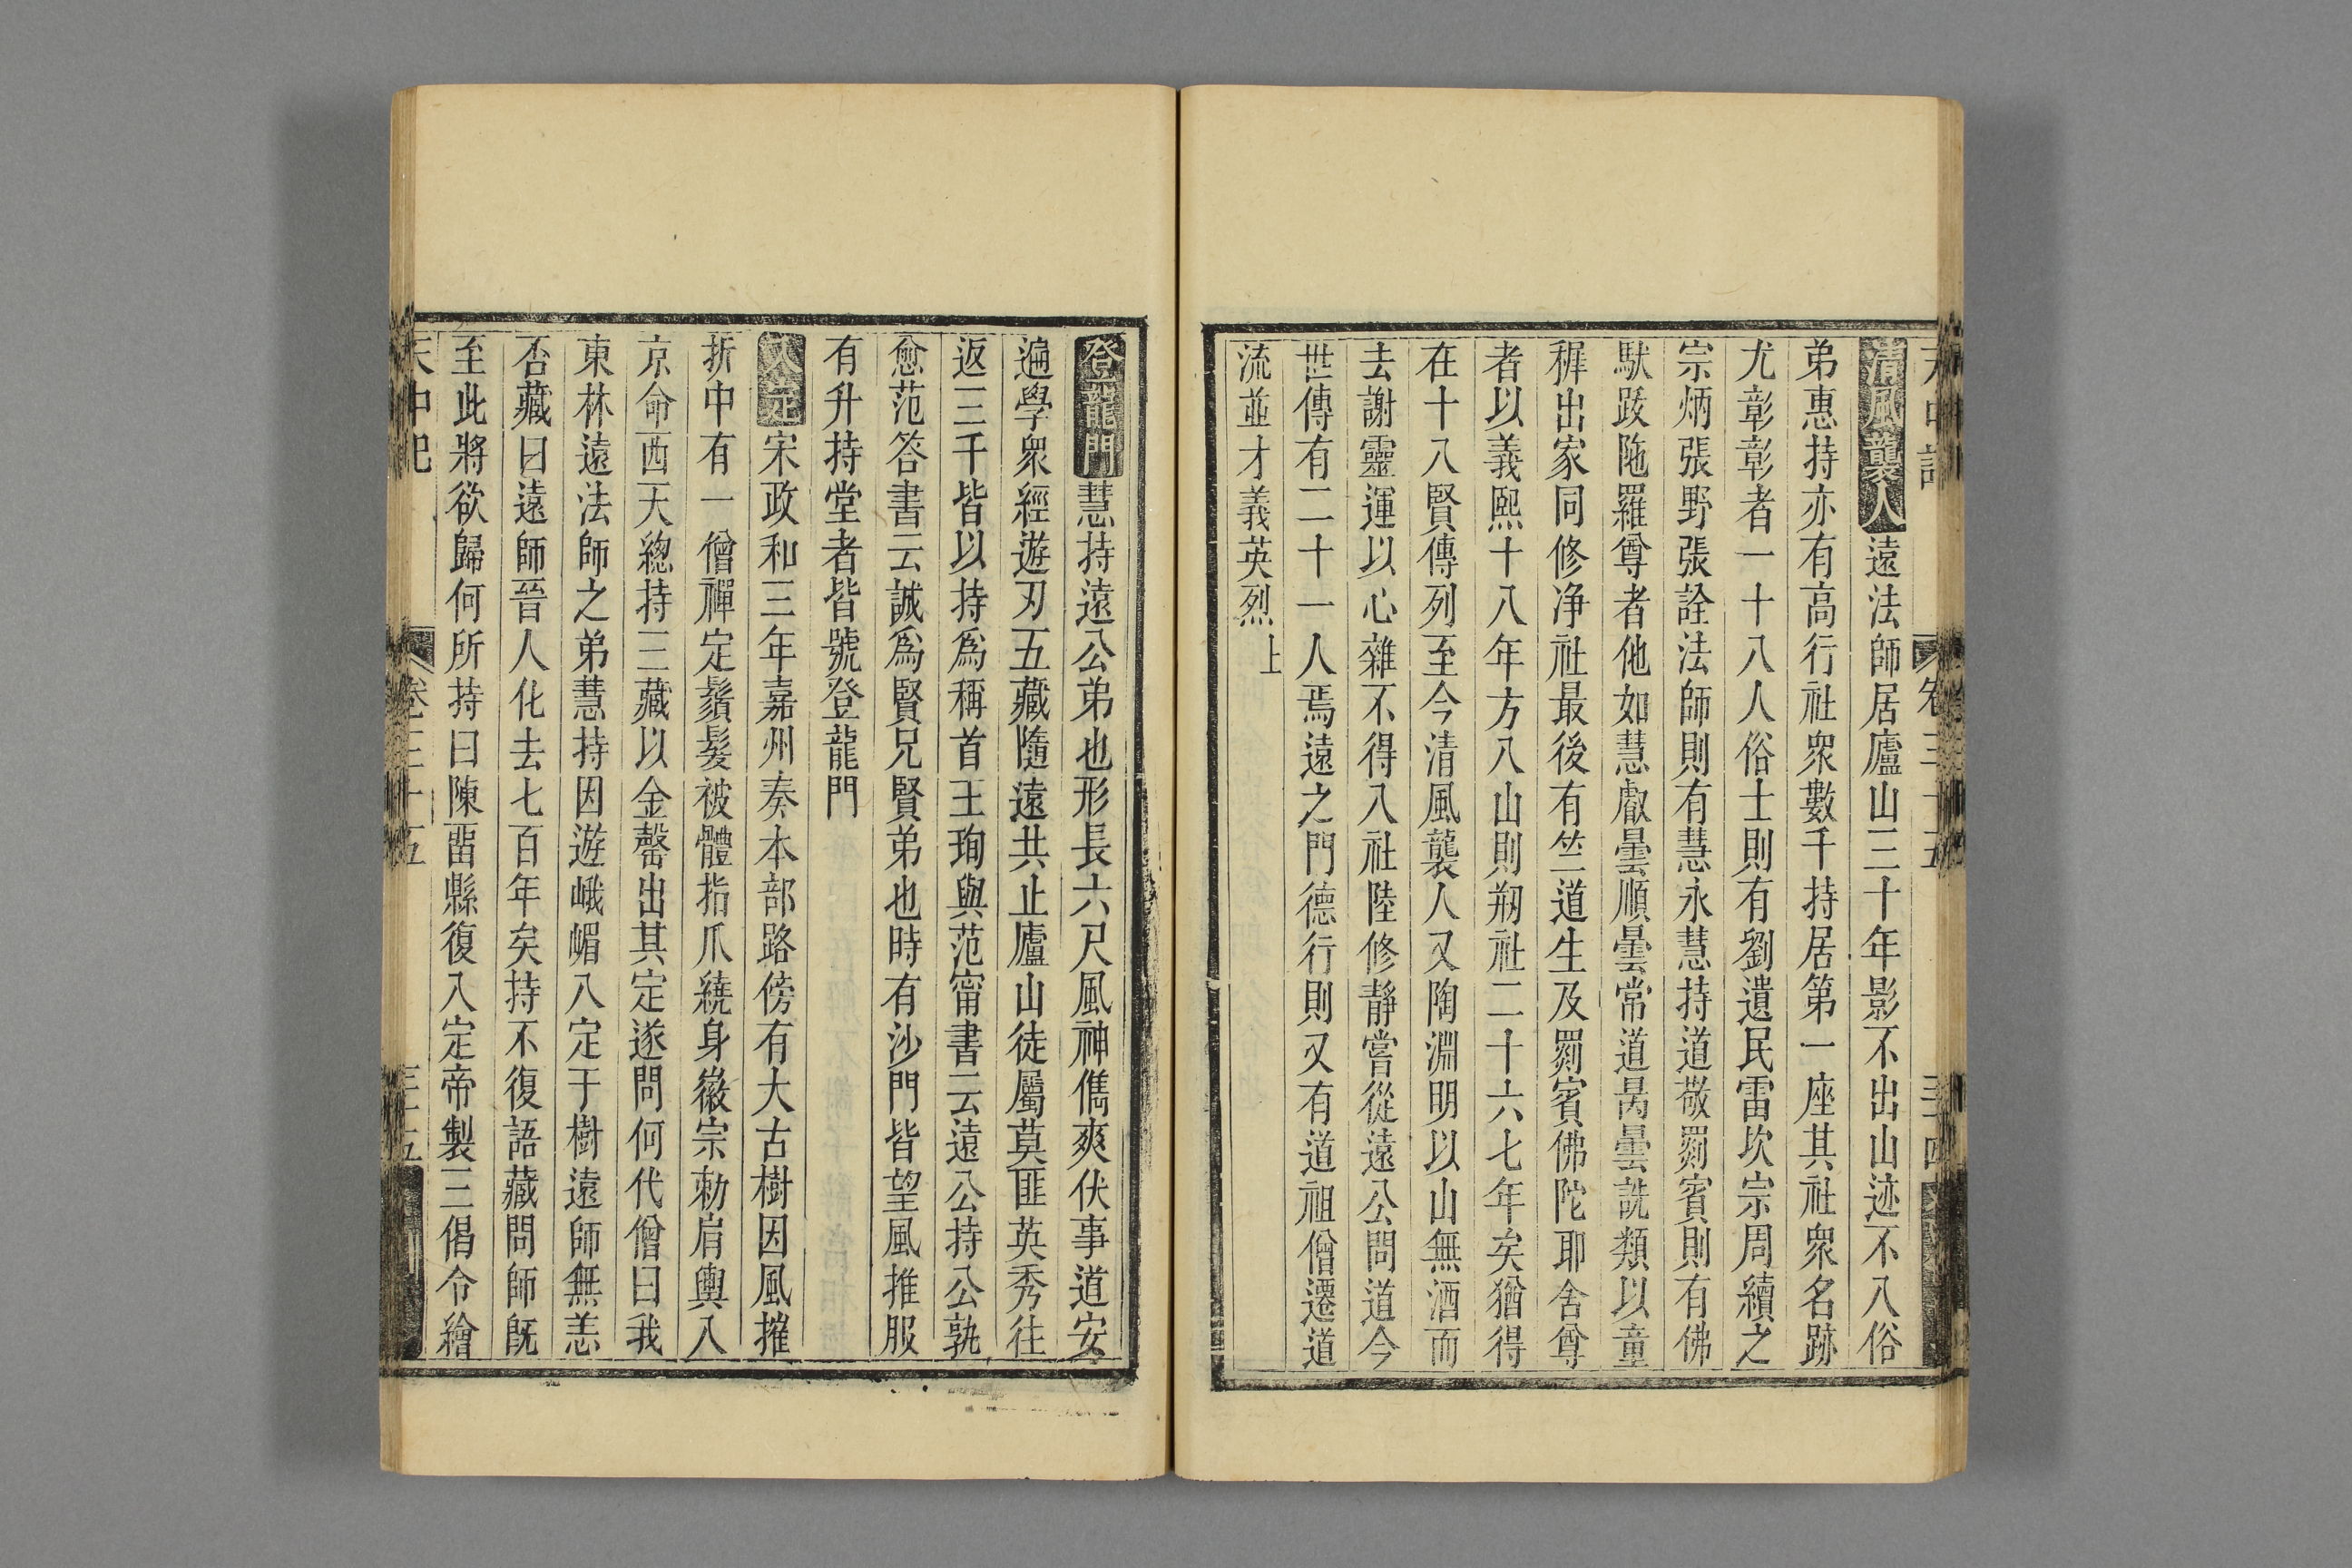 清風襲人遠法師居廬山三十年影不出山迹不入俗
弟惠持亦有高行社衆數千持居第一座其社衆名跡
尤彰彰者一十八人俗士則有劉遺民雷坎宗周續之
宗炳張野張詮法師則有慧永慧持道敬罽賓則有佛
馱跋陁羅尊者他如慧叡曇順曇常道昺曇詵類以童
穉出家同修净社最後有竺道生及罽賓佛陀耶舍尊
者以義熙十八年方入山則剏社二十六七年矣猶得
在十八賢傳列至今清風襲人又陶淵明以山無酒而
去謝靈運以心雜不得入社陸修靜嘗從遠公問道今
世傳有二十一人焉遠之門德行則又有道祖僧遷道
流並才義英烈上
登龍門慧持遠公弟也形長六尺風神儁爽伏事道安
遍學衆經遊刃五藏隨遠共止廬山徒屬莫匪英秀往
返三千皆以持爲稱首王珣與范甯書云遠公持公孰
愈范答書云誠爲賢兄賢弟也時有沙門皆望風推服
有升持堂者皆號登龍門
入定宋政和三年嘉州奏本部路傍有大古樹因風摧
折中有一僧禪定鬚髮被體指爪繞身徽宗勅肩輿入
京命西天總持三藏以金磬出其定遂問何代僧曰我
東林遠法師之弟慧持因遊峨嵋入定于樹遠師無恙
否藏曰遠師晉人化去七百年矣持不復語藏問師旣
至此將欲歸何所持曰陳畱縣復入定帝製三偈令繪
天中記 卷三十五 三十五